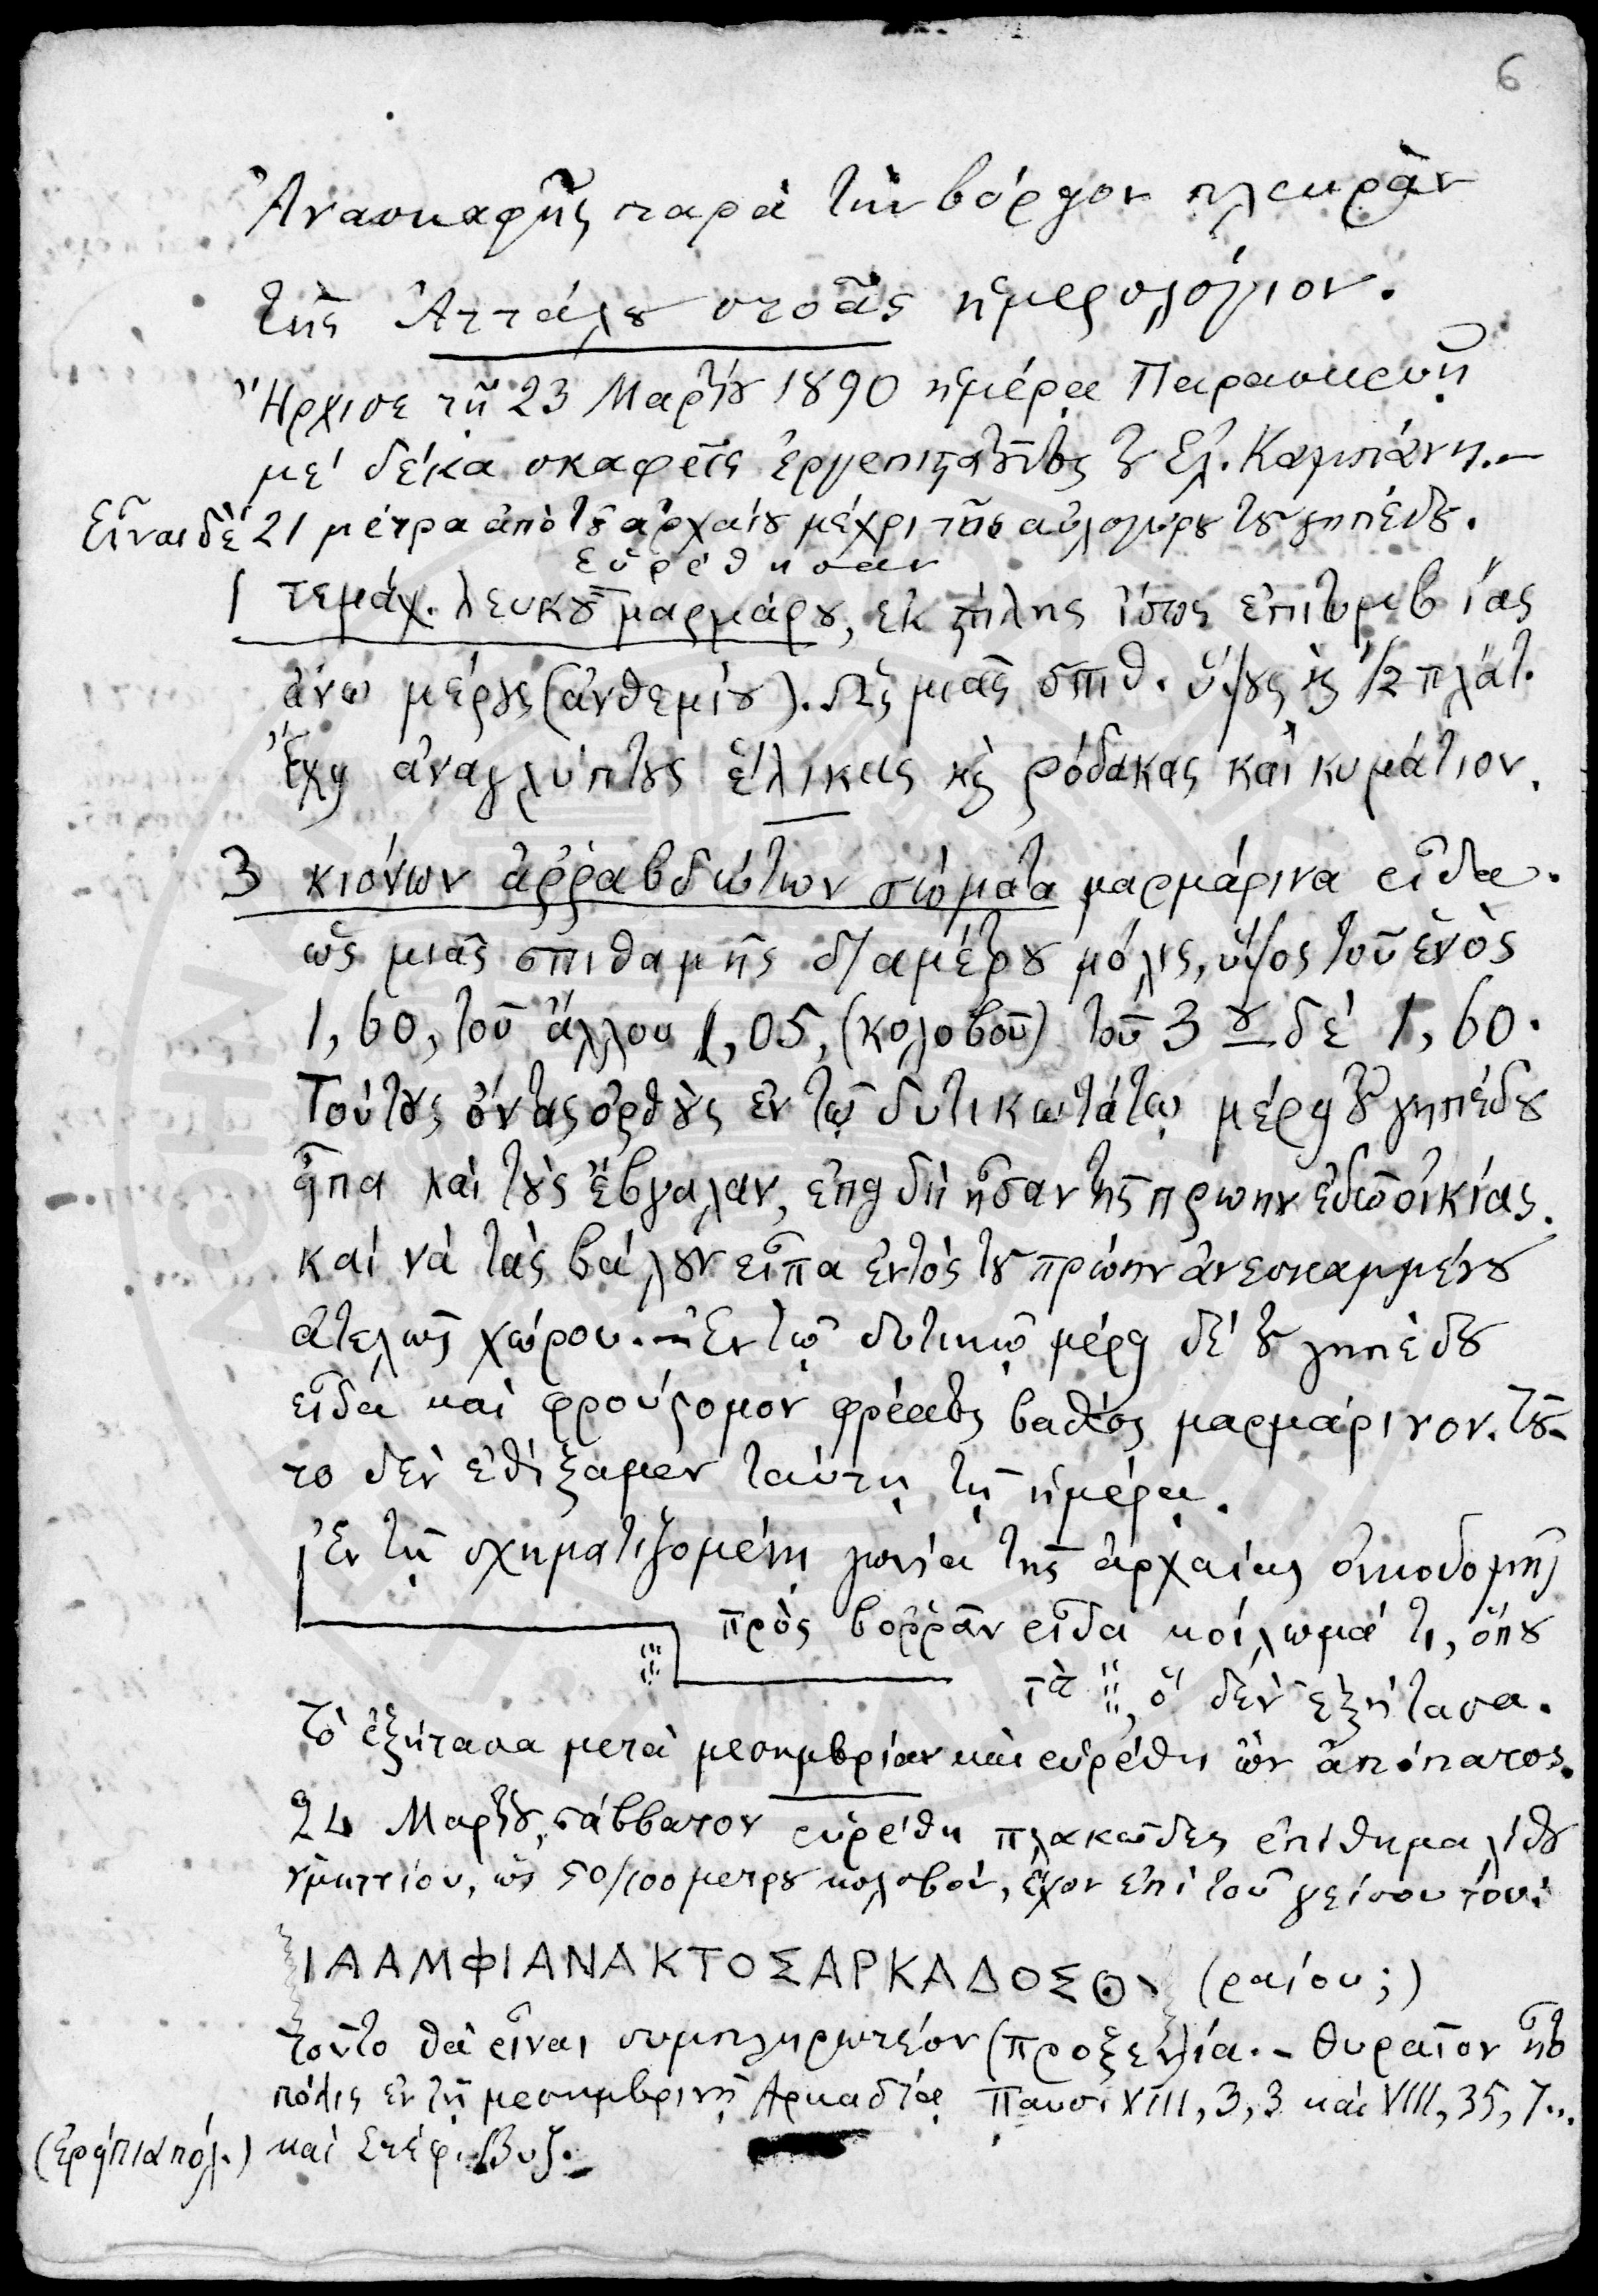 6
Ἀνασκαφῆς παρὰ τὴν βόρειον πλευρὰν
τῆς Ἀττάλου στοᾶς ἡμερολόγιον.
Ἤρχισε τῇ 23 Μαρτίου 1890 ἡμέρᾳ Παρασκευῇ
μὲ δέκα σκαφεῖς ἐργεπιστατοῦντος τοῦ Ἐλ. Καμπάνη.–
Εἶναι δὲ 21 μέτρα ἀπὸ τοῦ ἀρχαίου μέχρι τῆς αὐλογύρου τοῦ γηπέδου.
εὑρέθησαν
1 τεμάχ. λευκοῦ μαρμάρου, ἐκ στήλης ἴσως ἐπιτυμβίας
ἄνω μέρους (ἀνθεμίου). Ὡς μιᾶς σπιθ. ὕψους καὶ 1/2 πλάτ.
Ἔχει ἀναγλύπτους ἕλικας καὶ ῥόδακας καὶ κυμάτιον.
3 κιόνων ἀῤῥαβδώτων σώματα μαρμάρινα εἶδα.
ὡς μιᾶς σπιθαμῆς διαμέτρου μόλις, ὕψος τοῦ ἑνὸς
1,60, τοῦ ἄλλου 1,05, (κολοβοῦ) τοῦ 3ου δὲ 1,60.
Τούτους ὄντας ὀρθοὺς ἐν τῷ δυτικωτάτῳ μέρει τοῦ γηπέδου
εἶπα καὶ τοὺς ἔβγαλαν, ἐπειδὴ ἦσαν τῆς πρώην ἐδῶ οἰκίας.
καὶ νὰ τὰς βάλουν εἶπα ἐντὸς τοῦ πρώην ἀνεσκαμμένου
ἀτελῶς χώρου.– Ἐν τῷ δυτικῷ μέρει δὲ τοῦ γηπέδου
εἶδα καὶ φρούζομον φρέατος βαθέος μαρμάρινον. τοῦ-
το δὲν ἐθίξαμεν ταύτῃ τῇ ἡμέρᾳ.
Ἐν τῇ σχηματιζομένῃ γωνίᾳ τῆς ἀρχαίας οἰκοδομῆς
πρὸς βοῤῥᾶν εἶδα κοίλωμά τι, ὅπου
τὰ ⁝⁝, ὃ δὲν ἐξήτασα.
τὸ ἐξήτασα μετὰ μεσημβρίαν καὶ εὑρέθη ὢν ἀπόπατος.
24 Μαρτίου, σάββατον εὑρέθη πλακῶδες ἐπίθημα λίθου
ὑμηττίου, ὡς 50/100 μέτρου κολοβόν, ἔχον ἐπὶ τοῦ γείσου του:
ΙΑΑΜΦΙΑΝΑΚΤΟΣΑΡΚΑΔΟΣΘ\ (ραίου;)
τοῦτο θὰ εἶναι συμπληρωτέον (προξεν)ία.– Θυραῖον ἦτο
πόλις ἐν τῇ μεσημβρινῇ Ἀρκαδίᾳ Παυσ. XIII, 3, 3 καὶ VIII, 35, 7...
(ἐρείπια πόλ.) καὶ Στέφ. Βυζ.